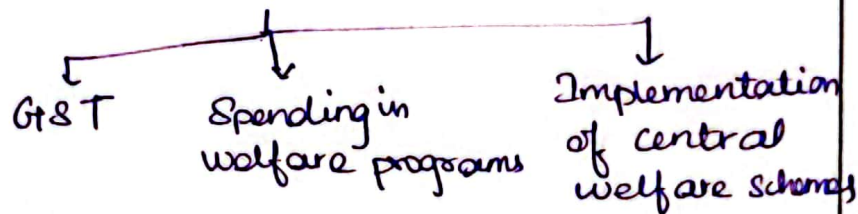 GST
Spending in
welfare programs
Implementation
of central
welfare schemes